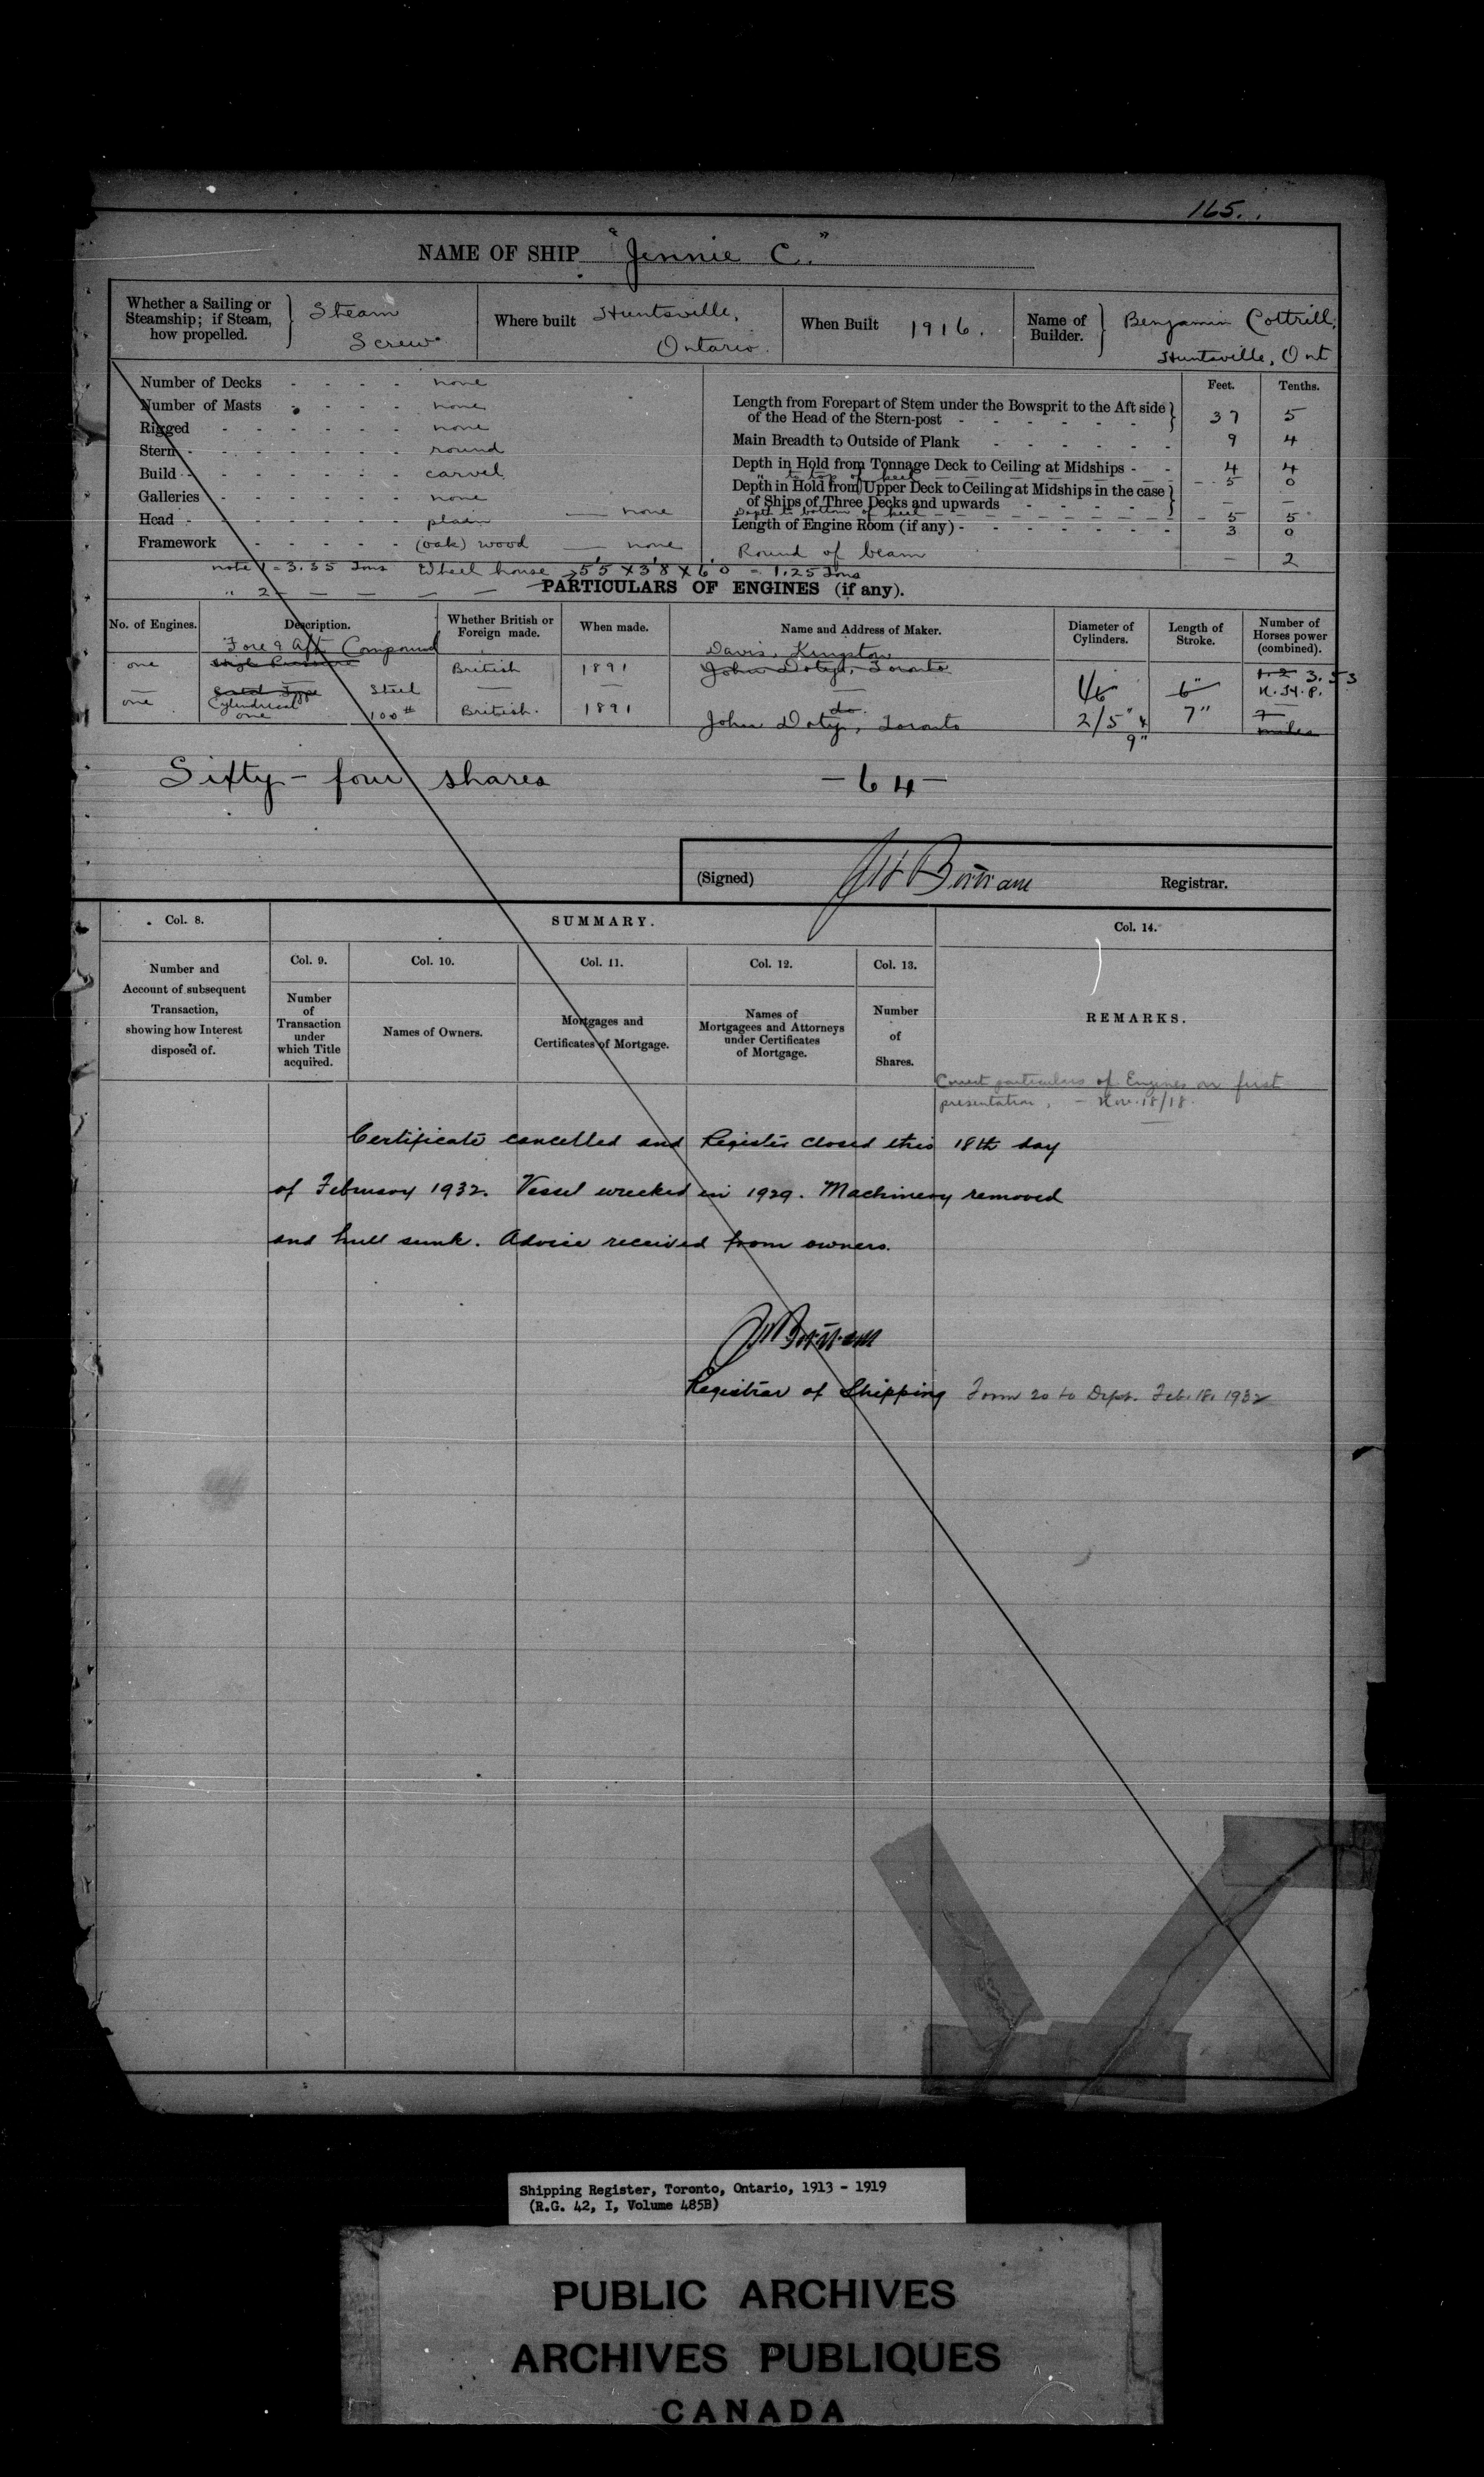 165.
NAME OF SHIP "Jennie C."
Whether a Sailing or Steamship; if Steam, how propelled. Steam Screw
Where built Huntsville, Ontario.
When Built 1916.
Name of Builder. Benjamin Cottrill, Huntsville, Ont
Number of Decks - - - - none
Number of Masts - - - - none
Rigged - - - - - - none
Stern - - - - - - round
Build - - - - - - carvel
Galleries - - - - - none
Head - - - - - - plain — none
Framework - - - - - (oak) wood — none
Feet. Tenths.
Length from Forepart of Stem under the Bowsprit to the Aft side of the Head of the Stern-post - - - - - - 37 5
Main Breadth to Outside of Plank - - - - - - 9 4
Depth in Hold from Tonnage Deck to Ceiling at Midships - - 4 4
" to top of keel - 5 0
Depth in Hold from Upper Deck to Ceiling at Midships in the case of Ships of Three Decks and upwards - - - - - — —
Depth to bottom of keel - 5 5
Length of Engine Room (if any) - - - - - - - 3 0
Round of beam — 2
note 1 = 3.35 Tons Wheel house → 5'5 X 3'8 X 6'0 = 1.25 Tons
" 2 — — — — —
PARTICULARS OF ENGINES (if any).
No. of Engines. Description. Whether British or Foreign made. When made. Name and Address of Maker. Diameter of Cylinders. Length of Stroke. Number of Horses power (combined).
Fore & Aft Compound Davis, Kingston
one High Pressure British 1891 John Doty, Toronto 1/6 6" 1.2 3.53
— Steel — — — N.H.P.
one Cylindrical one 100# British. 1891 do. John Doty, Toronto 2/5" & 9" 7" 7 miles
Sixty-four shares —64—
(Signed) Registrar.
Col. 8. SUMMARY. Col. 14.
Col. 9. Col. 10. Col. 11. Col. 12. Col. 13.
Number and Account of subsequent Transaction, showing how Interest disposed of.
Number of Transaction under which Title acquired.
Names of Owners.
Mortgages and Certificates of Mortgage.
Names of Mortgagees and Attorneys under Certificates of Mortgage.
Number of Shares.
REMARKS.
Correct particulars of Engines on first
presentation, - Nov. 18/18.
Certificate cancelled and Register closed this 18th day
of February 1932. Vessel wrecked in 1929. Machinery removed
and hull sunk. Advice received from owners.
Registrar of Shipping Form 20 to Dept. Feb. 18. 1932
Shipping Register, Toronto, Ontario, 1913 - 1919
(R.G. 42, I, Volume 485B)
PUBLIC ARCHIVES
ARCHIVES PUBLIQUES
CANADA